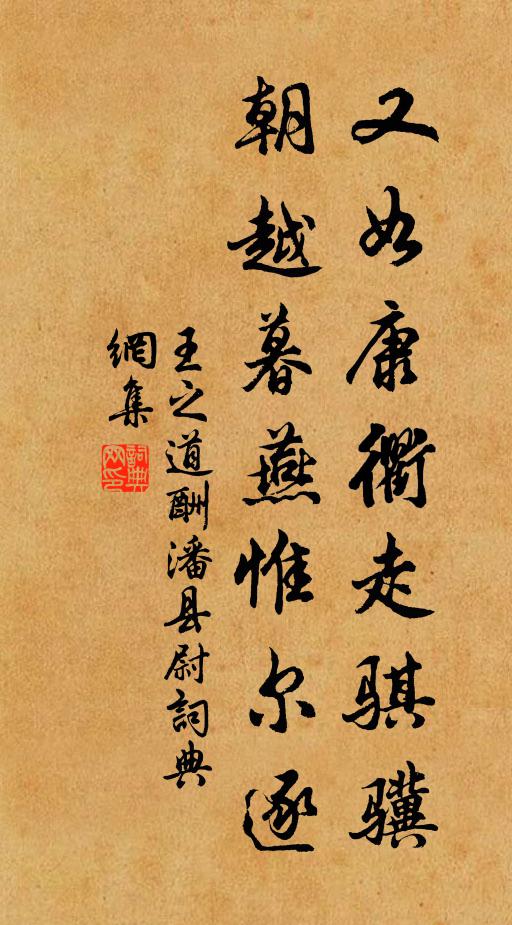 又如康衢走骐骥
朝越暮燕惟尔逐
王之道酬潘县尉詞典
網集
詞典網印